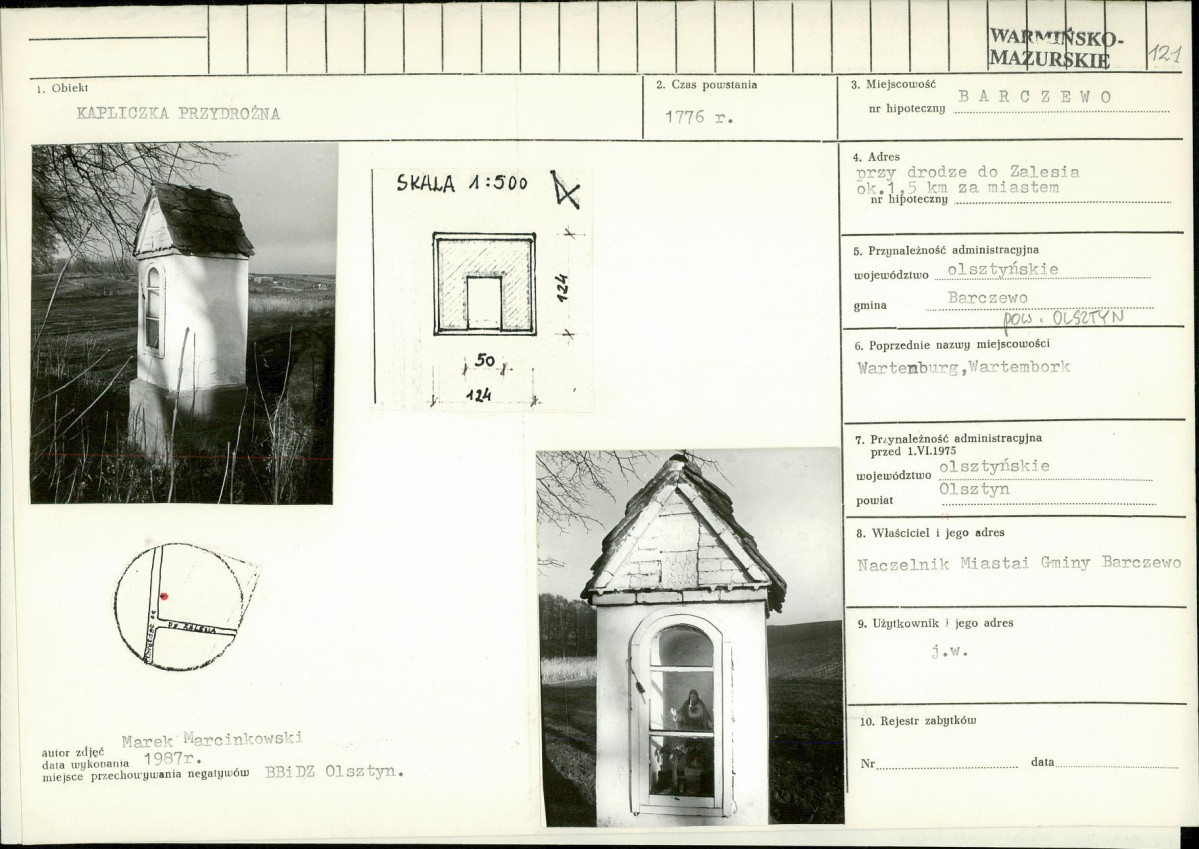 WARMIŃSKO-
MAZURSKIE
121
1. Obiekt
KAPLICZKA PRZYDROŻNA
2. Czas powstania
1776 r.
3. Miejscowość
BARCZEWO
nr hipoteczny
SKALA 1:500
124
50
124
4. Adres
przy drodze do Zalesia
ok.1,5 km za miastem
nr hipoteczny
5. Przynależność administracyjna
województwo olsztyńskie
gmina Barczewo
pow. OLSZTYN
6. Poprzednie nazwy miejscowości
Wartenburg,Wartembork
7. Przynależność administracyjna
przed 1.VI.1975
województwo olsztyńskie
powiat Olsztyn
8. Właściciel i jego adres
Naczelnik Miastai Gminy Barczewo
9. Użytkownik i jego adres
j.w.
10. Rejestr zabytków
Nr
data
DO ZALESIA
autor zdjęć Marek Marcinkowski
data wykonania 1987r.
miejsce przechowywania negatywów BBiDZ Olsztyn.